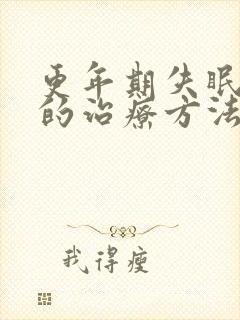 更年期失眠
的治疗方法
我得瘦